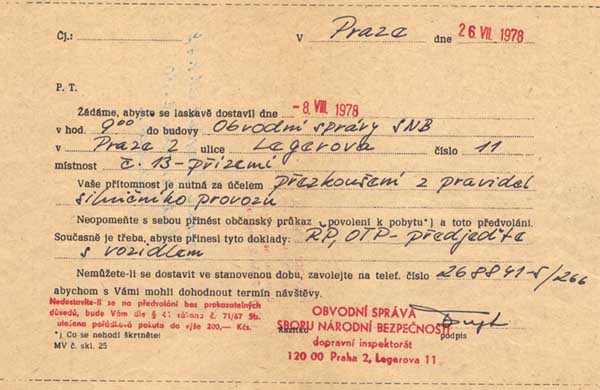 Čj.: V Praze dne 26 VII. 1978
P. T.
Žádáme, abyste se laskavě dostavil dne -8. VIII. 1978
v hod. 9⁰⁰ do budovy Obvodní správy SNB
v Praze 2 ulice Legerova číslo 11
místnost č. 13 - přízemí
Vaše přítomnost je nutná za účelem přezkoušení z pravidel
silničního provozu
Neopomeňte s sebou přinést občanský průkaz povolení k pobytu*) a toto předvolání.
Současně je třeba, abyste přinesl tyto doklady: ŘP, OTP - předjeďte
s vozidlem
Nemůžete-li se dostavit ve stanovenou dobu, zavolejte na telef. číslo 268841-5/266
abychom s Vámi mohli dohodnout termín návštěvy.
Nedostavíte-li se na předvolání bez prokazatelných
důvodů, bude Vám dle § 41 zákona č. 71/67 Sb.
uložena pořádková pokuta do výše 200,— Kčs.
*) Co se nehodí škrtněte!
MV č. skl. 25
OBVODNÍ SPRÁVA
SBORU NÁRODNÍ BEZPEČNOSTI
dopravní inspektorát
120 00 Praha 2, Legerova 11
podpis